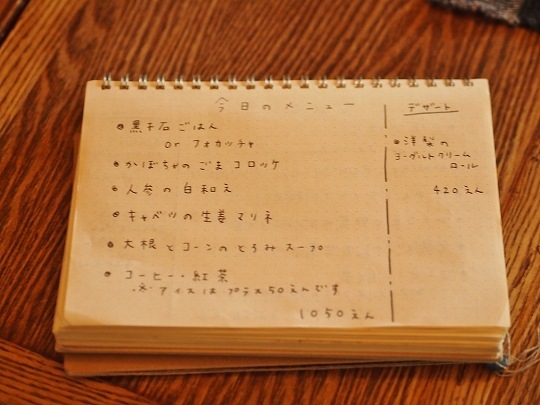 今日のメニュー
黒千石ごはん
or フォカッチャ
かぼちゃのごまコロッケ
人参の白和え
キャベツの生姜マリネ
大根とコーンのとろみスープ
コーヒー・紅茶
※アイスはプラス50えんです
1050えん
デザート
洋梨の
ヨーグルトクリーム
ロール
420えん